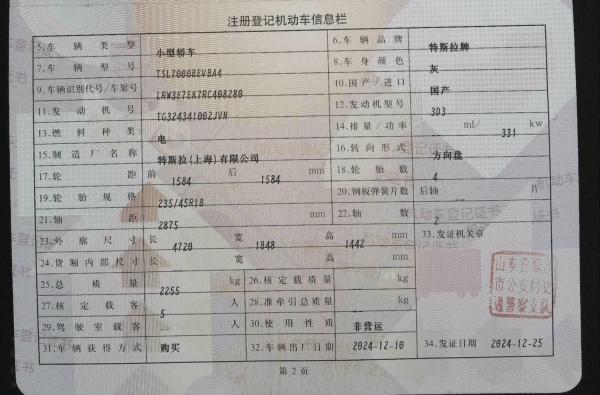 注册登记机动车信息栏
5.车辆类型 小型轿车 6.车辆品牌 特斯拉牌
7.车辆型号 TSL7000BEVBA4 8.车身颜色 灰
9.车辆识别代号/车架号 LRW3E7EK7RC408280 10.国产/进口 国产
11.发动机号 TG324341002JVN 12.发动机型号 3D3
13.燃料种类 电 14.排量/功率 ml/ 331 kw
15.制造厂名称 特斯拉(上海)有限公司 16.转向形式 方向盘
17.轮距 前 1584 后 1584 mm 18.轮胎数 4
19.轮胎规格 235/45R18 20.钢板弹簧片数 后轴 片
21.轴距 2875 mm 22.轴数 2
23.外廓尺寸 长 4720 宽 1848 高 1442 mm 33.发证机关章
24.货厢内部尺寸 长 宽 高 mm
25.总质量 2255 kg 26.核定载质量 kg
27.核定载客 5 人 28.准牵引总质量 kg
29.驾驶室载客 人 30.使用性质 非营运
31.车辆获得方式 购买 32.车辆出厂日期 2024-12-10 34.发证日期 2024-12-25
第2页